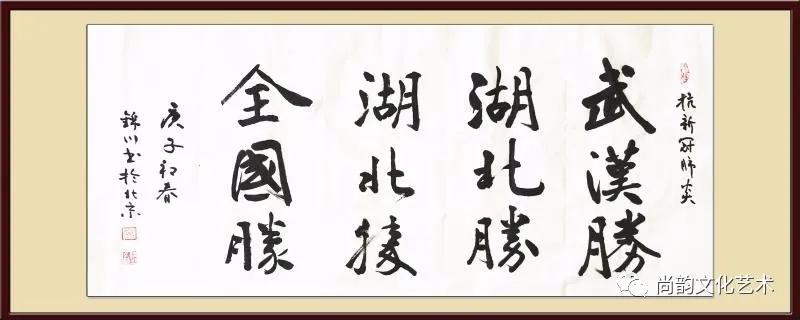 抗新冠肺炎
武漢勝
湖北勝
湖北
全國勝
庚子初春
錦川书於北京
尚韵文化艺术